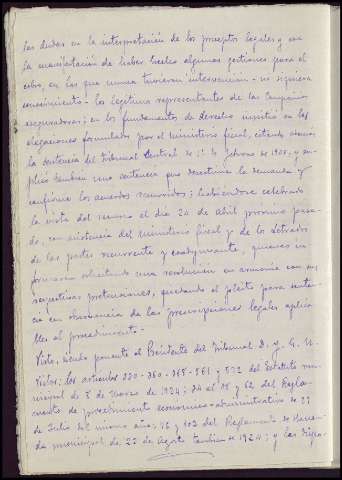 las dudas en la interpretación de los preceptos legales y en
la manifestación de haber hecho algunas gestiones para el
cobro, en las que nunca tuvieron intervención - ni siquiera
conocimiento - los legítimos representantes de las Compañías
aseguradoras; en los fundamentos de derecho insistió en las
alegaciones formuladas por el ministerio fiscal, citando además
la sentencia del Tribunal Central de 1º de febrero de y su-
plicó también una sentencia que desestime la demanda y
confirme los acuerdos recurridos; habiéndose celebrado
la vista del recurso el día 24 de Abril próximo pasa-
do, con asistencia del ministerio fiscal y de los letrados
de las partes recurrente y coadyuvante, quienes in-
formaron solicitando una resolución en armonía con sus
respectivas pretensiones, quedando el pleito para senten-
cia con observancia de las prescripciones legales aplica-
bles al procedimiento. -
Visto, siendo ponente el Presidente del Tribunal D. y G. U.
Vistos; los artículos 330 - 360 - 561 y 572 del Estatuto mu-
nicipal de 8 de Marzo de 1924; 34 al 38 y 62 del Regla-
mento de procedimiento económico-administrativo de 29
de Julio del mismo año; 46 y 103 del Reglamento de Hacien-
da municipal de 23 de Agosto también de 1924; y las dispo-